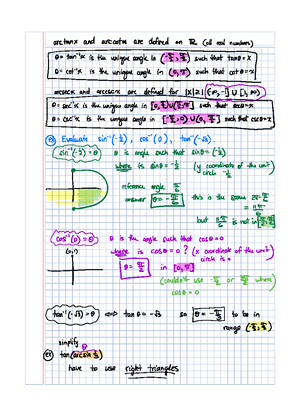 arctanx and arccotx are defined on ℝ (all real numbers)
θ = tan⁻¹x is the unique angle in (-π/2, π/2) such that tanθ = x
θ = cot⁻¹x is the unique angle in (0, π) such that cotθ = x
arcsecx and arccscx are defined for |x| ≥ 1 (-∞, -1] ∪ [1, ∞)
θ = sec⁻¹x is the unique angle in [0, π/2) ∪ (π/2, π] such that secθ = x
θ = csc⁻¹x is the unique angle in [-π/2, 0) ∪ (0, π/2] such that cscθ = x
ex Evaluate sin⁻¹(-½), cos⁻¹(0), tan⁻¹(-√3)
sin⁻¹(-½) = θ θ is angle such that sinθ = (-½)
where is sinθ = -½ (y coordinate of the unit
circle -½
reference angle π/6
answer θ = -π/6 this is the same 2π-π/6
= 11π/6
but 11π/6 is not in [-π/2, π/2]
cos⁻¹(0) = θ θ is the angle such that cosθ = 0
where is cosθ = 0? (x coordinate of the unit
circle is 0
θ = π/2 in [0, π]
(couldn't use -π/2 or 3π/2 where)
cosθ = 0
tan⁻¹(-√3) = θ ⟺ tanθ = -√3 so θ = -π/3 to be in
range (-π/2, π/2)
simplify θ
ex tan(arcsin
have to use right triangles